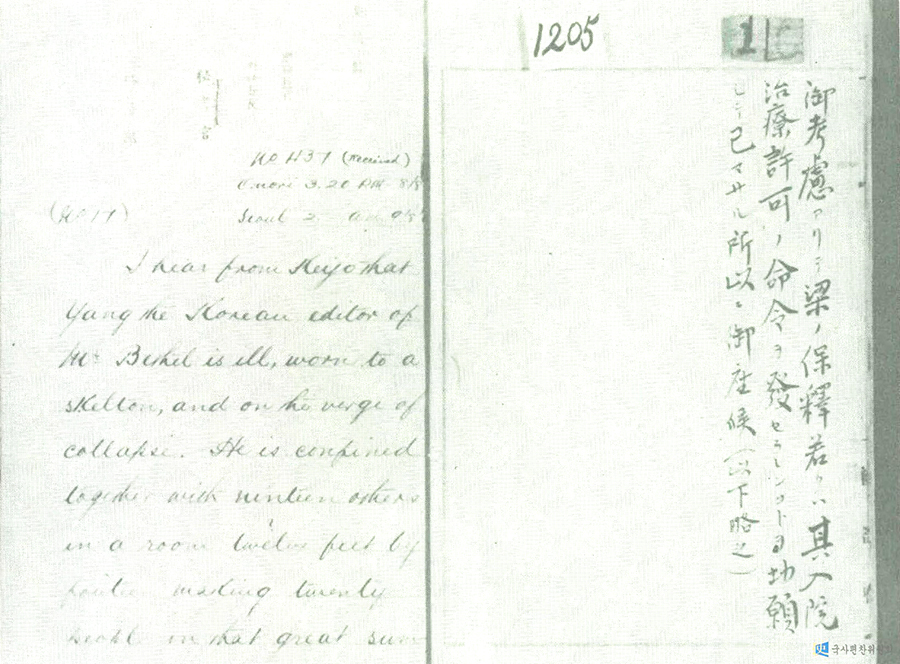 No 437 (Received)
Omori 3.20 PM 8/8
(No 17) Seoul 2
I hear from Keijo that
Yang the Korean editor of
Mr Bethel is ill, worn to a
skelton, and on the verge of
collapse. He is confined
together with ninteen others
in a room twelve feet by
making twenty
people in that great sum
1205
1
御考慮アリテ梁ノ保釋若クハ其入院
治療許可ノ命令ヲ發セラレンコトヲ切願
シテ已マサル所以ニ御座候(以下略之)
국사편찬위원회